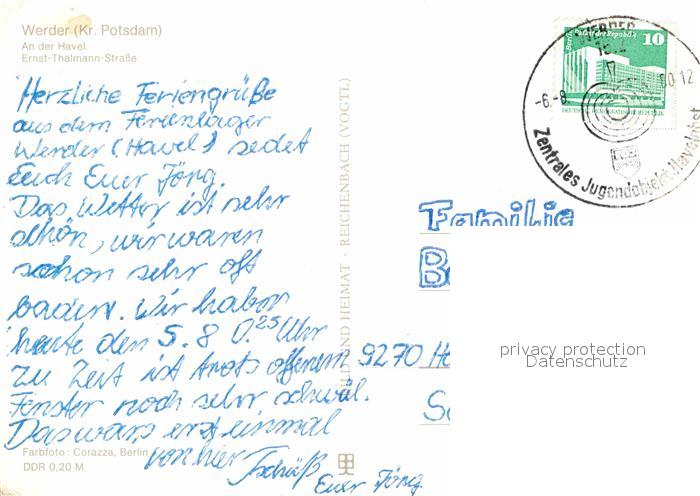 Werder (Kr. Potsdam)
An der Havel
Ernst-Thälmann-Straße
Herzliche Feriengrüße
aus dem Ferienlager
Werder (Havel) sedet
Euch Euer Jörg.
Das Wetter ist sehr
schön, wir waren
schon sehr oft
baden. Wir haben
heute den 5. 8 0.25 Uhr
Zu Zeit ist trots offenem
Fenster noch sehr schwül.
Das wars erst einmal
von hier Tschüß
Euer Jörg
Farbfoto: Corazza, Berlin
DDR 0,20 M
BILD UND HEIMAT · REICHENBACH (VOGTL)
Palast der Republik 10
WERDER
-6.-8
Zentrales Jugendobjekt Havelobst
Familie
9270
privacy protection
Datenschutz